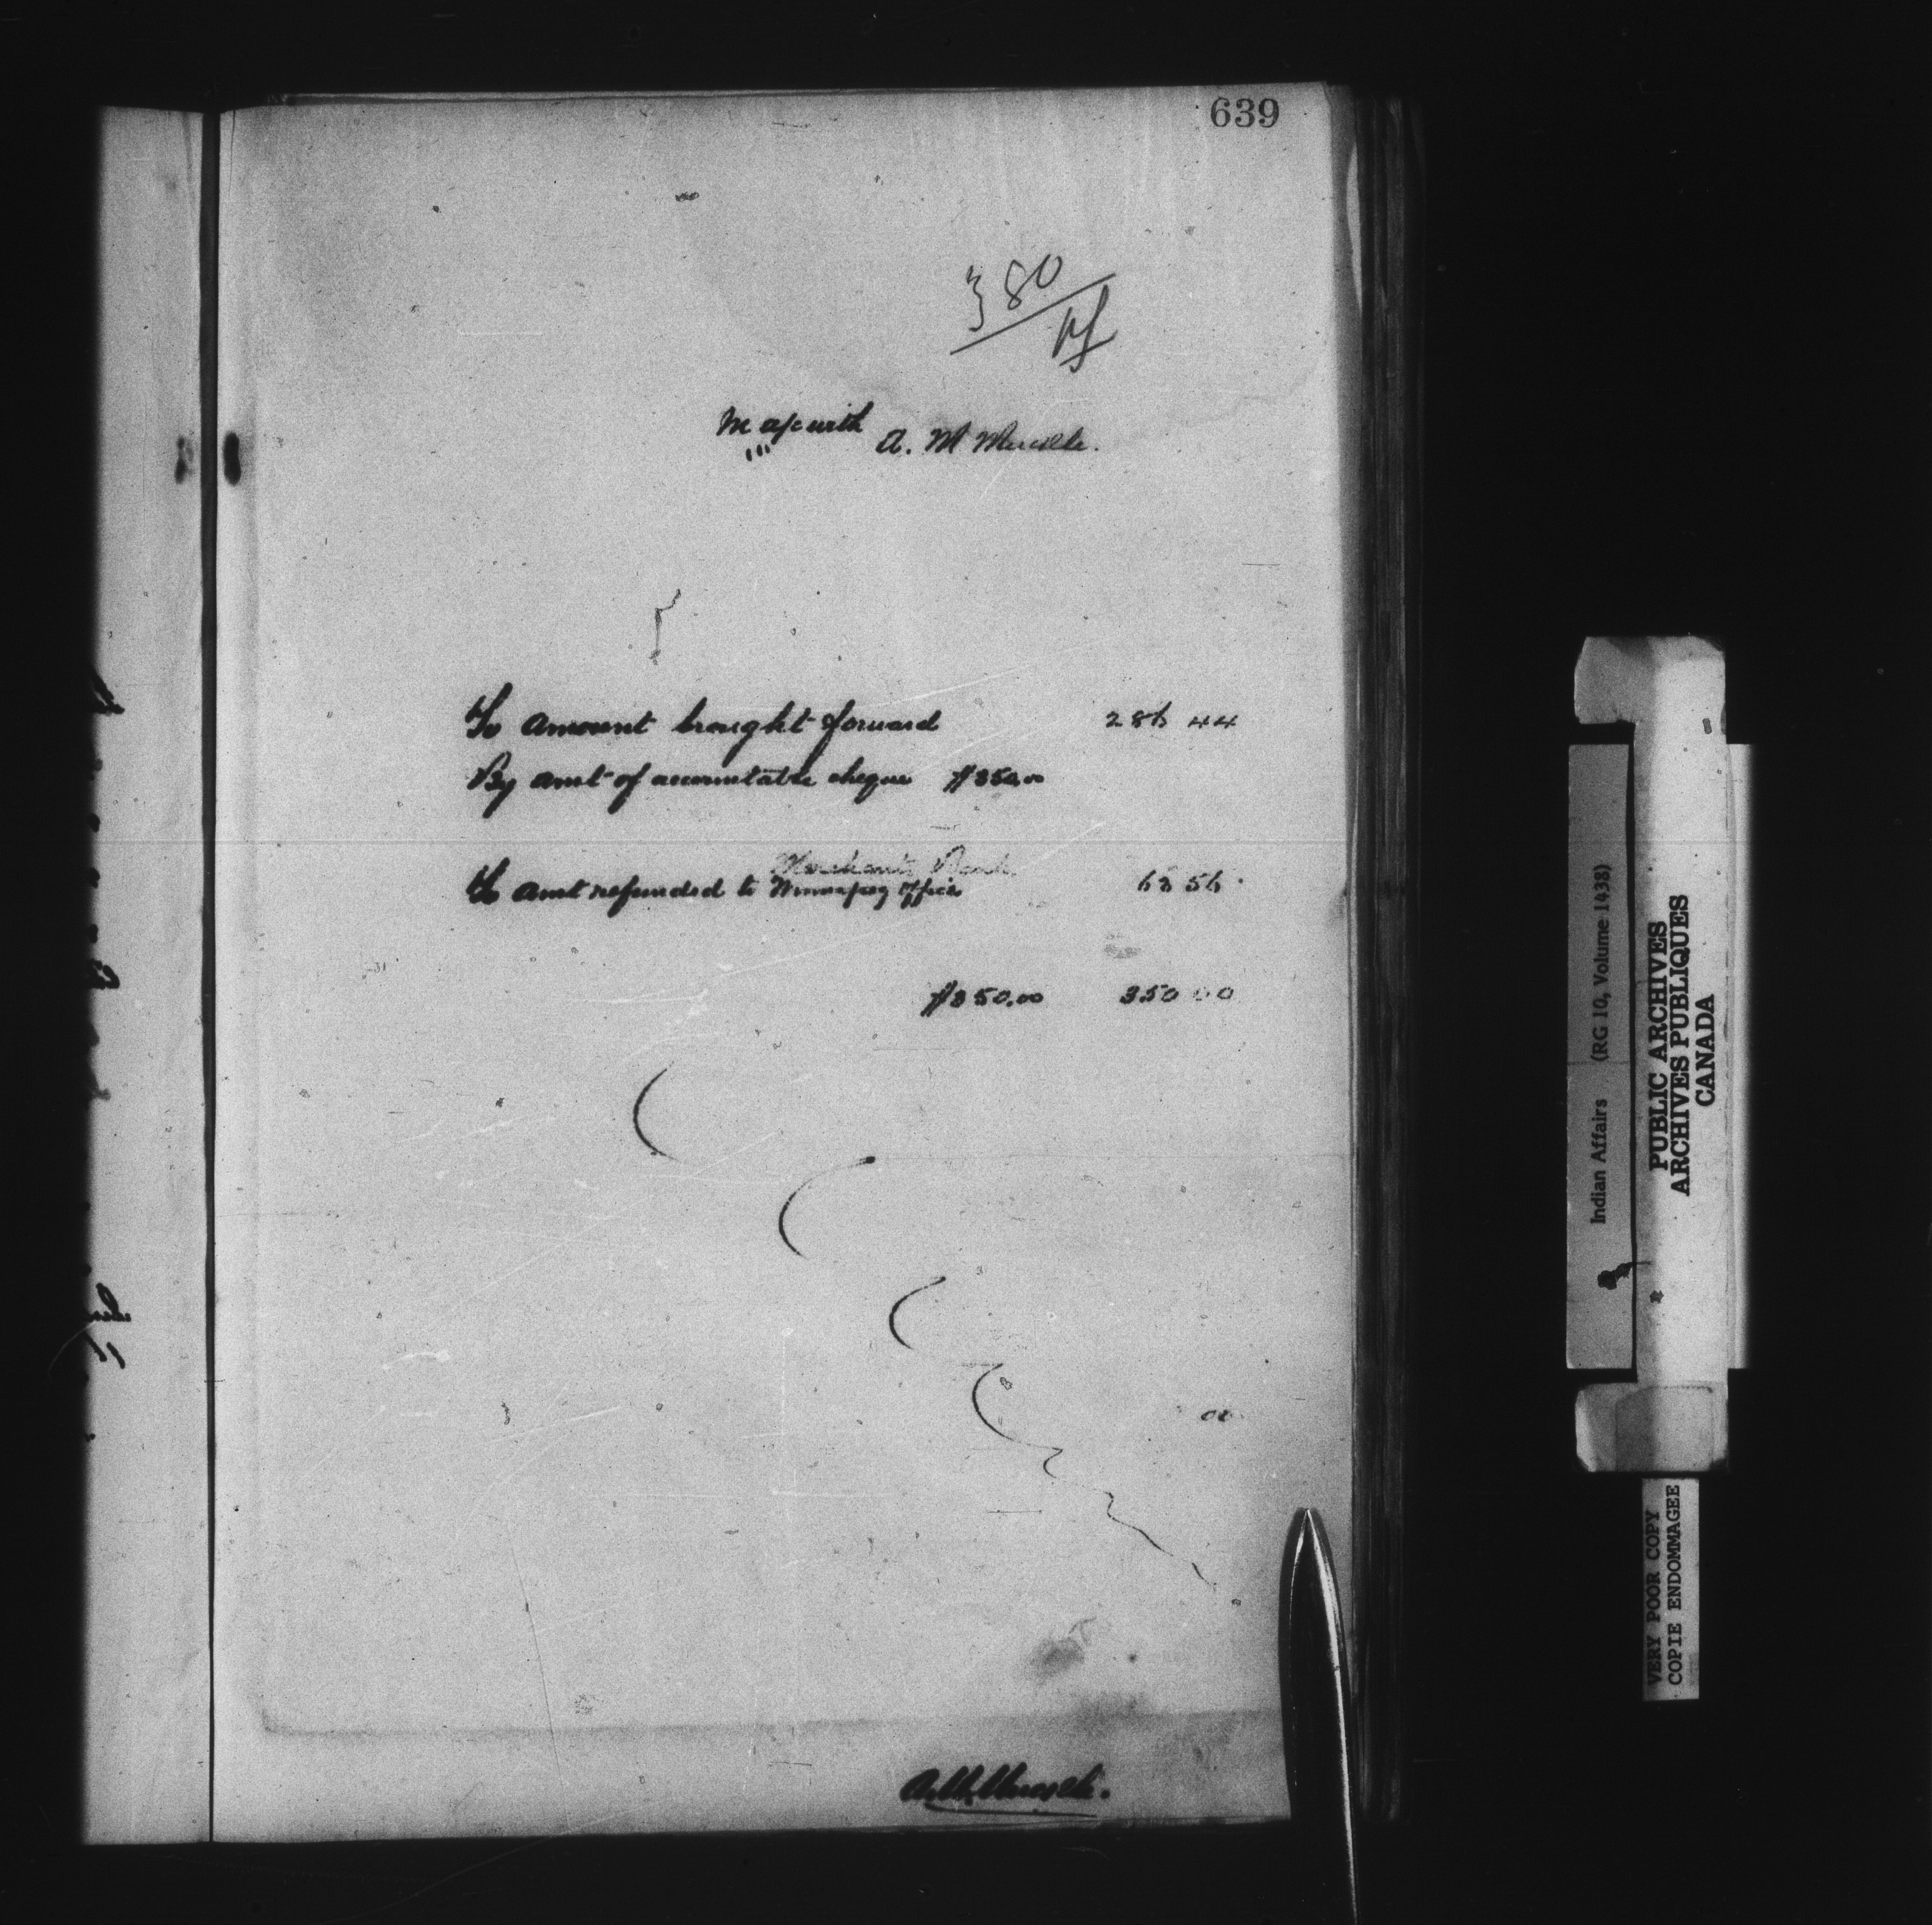 639
380
In a/c with A. M Muckle.
To Amount brought forward 286 44
By amt of accountable cheque $350.00
Merchants Bank
To amt refunded to Winnipeg office 63 56
$350.00 350 00
A. M. Muckle.
Indian Affairs (RG 10, Volume 1438)
PUBLIC ARCHIVES
ARCHIVES PUBLIQUES
CANADA
VERY POOR COPY
COPIE ENDOMMAGEE